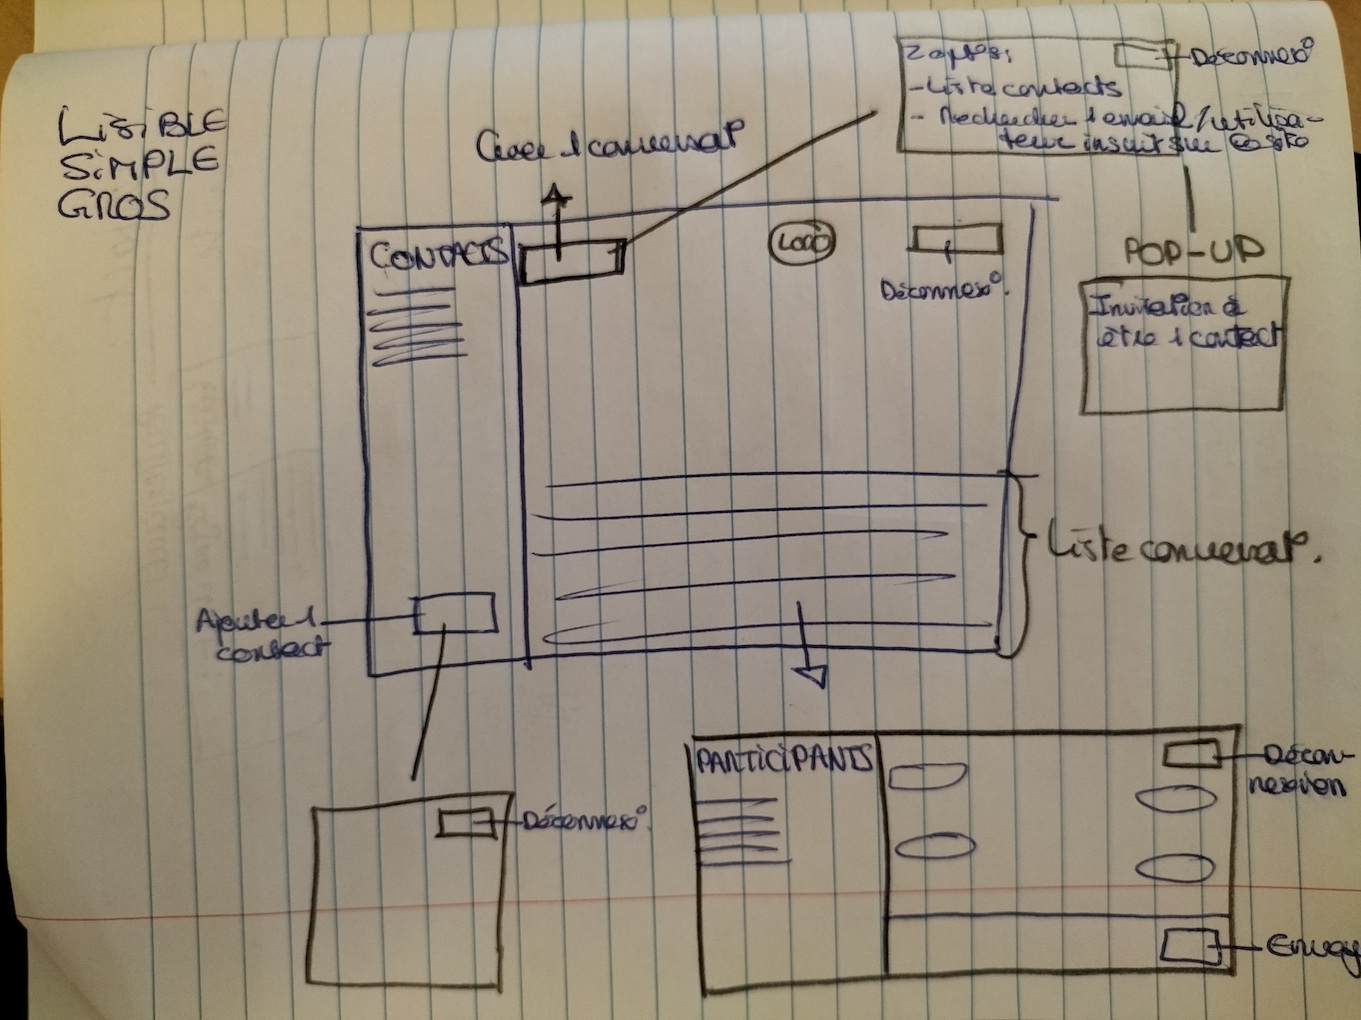 LiSiBLE
SiMPLE
GROS
Créer 1 conversat°
2 opt°s:
Déconnex°
- Liste contacts
- Rechercher 1 email/utilisa-
teur inscrit sur
CONTACTS
LOGO
Déconnex°.
POP-UP
Invitation à
être 1 contact
Liste conversat°.
Ajouter 1
contact
Déconnex°.
PARTiCiPANTS
Décon-
nexion
Envoy